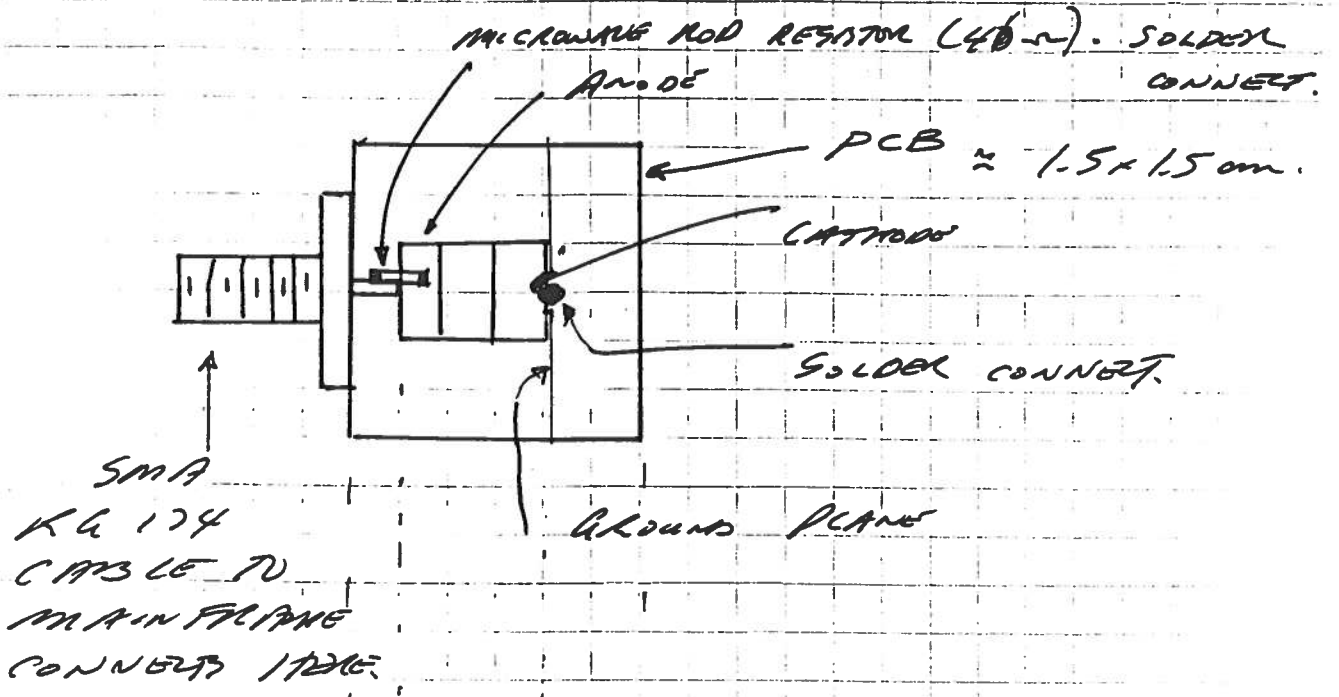 MICROWAVE ROD RESISTOR (4 Ω). SOLDER
CONNECT.
ANODE
PCB ≈ 1.5 x 1.5 cm.
CATHODE
SOLDER CONNECT.
GROUND PLANE
SMA
RG 174
CABLE TO
MAINFRAME
CONNECTS HERE.